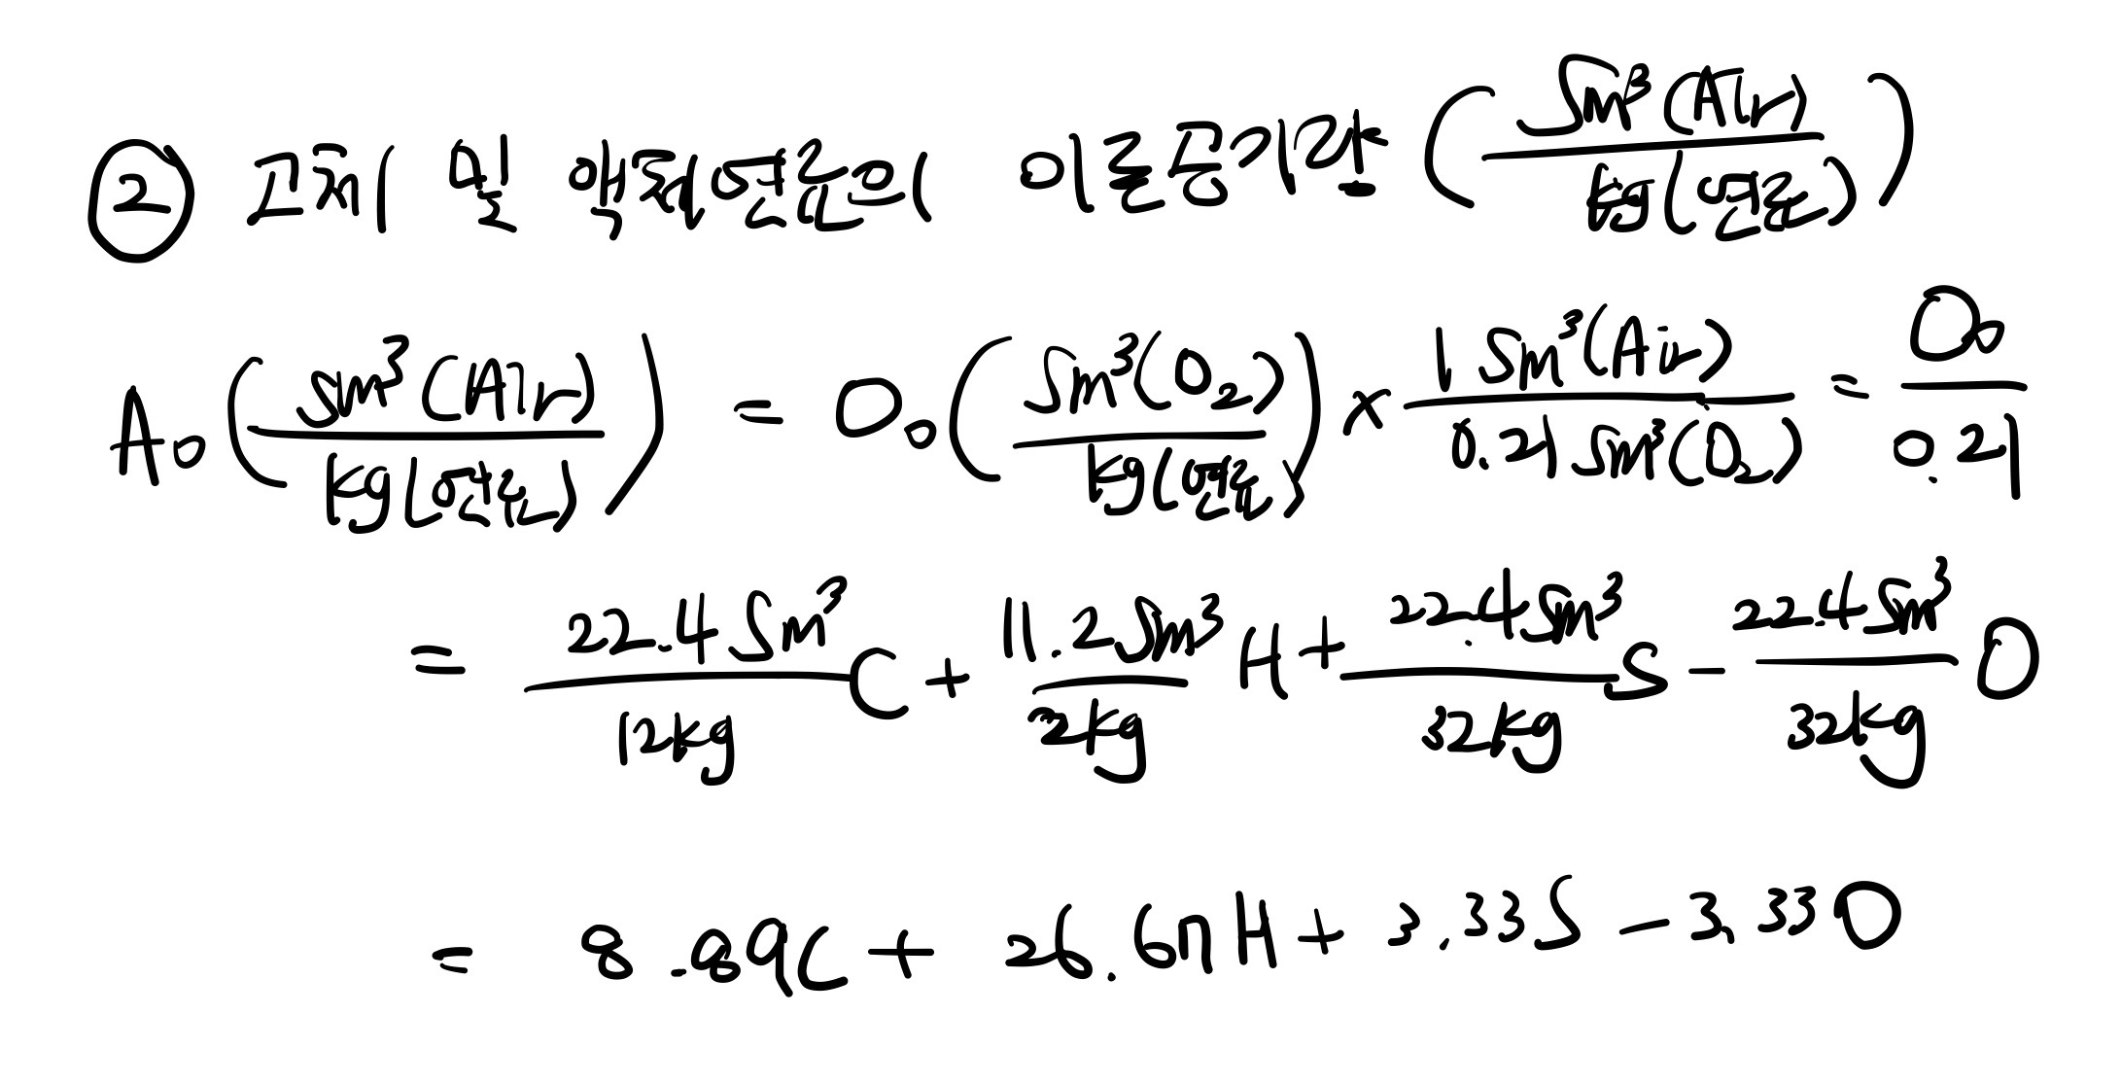 ② 고체 및 액체연료의 이론공기량 (Sm³(Air)/kg(연료))
A₀(Sm³(Air)/kg(연료)) = O₀(Sm³(O₂)/kg(연료)) × 1 Sm³(Air)/0.21 Sm³(O₂) = O₀/0.21
= 22.4 Sm³/12kg C + 11.2 Sm³/2kg H + 22.4 Sm³/32kg S - 22.4 Sm³/32kg O
= 8.89C + 26.67H + 3.33S - 3.33O